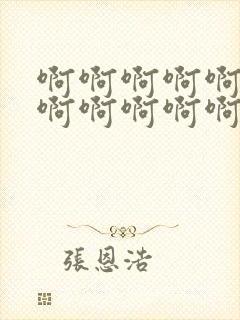 啊啊啊啊啊
啊啊啊啊啊
張恩浩